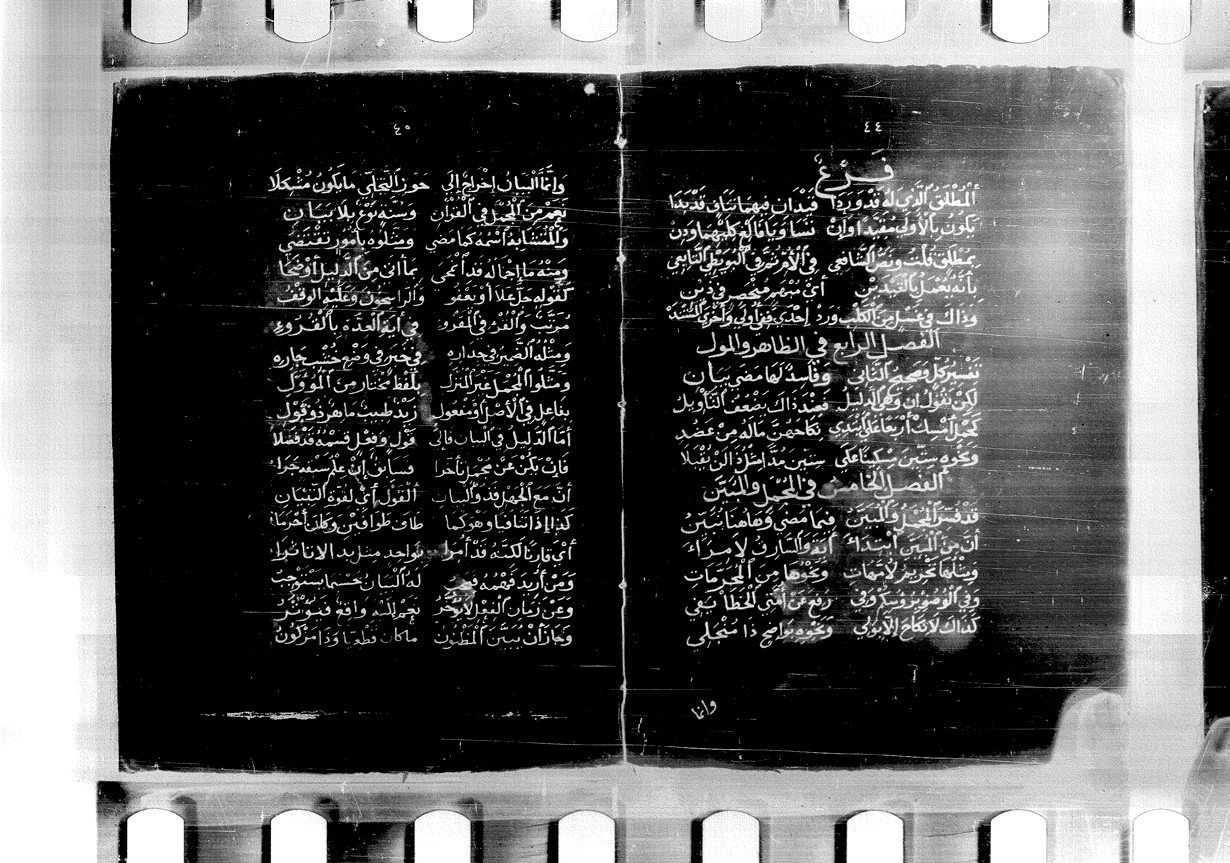 ٤٤
فرع
المطلق الذي له قد وردا قيدان فيهما تنافٍ قد بدا
يكون بالأولى مقيدا وإن تساويا فألغ كليهما ودن
بمطلق قلت ونص الشافعي في الأم ثم في البويطي التابعي
بأنه يعمل بالقيدين أي مبهم منحصر في ذين
وذاك في غسل من الكلب ورد إحدى ففي أولى وأخرى
الفصل الرابع في الظاهر والمول
تفسير كل وصحيح الثاني وفاسد لها مضى بيان
لكن نقول إن وهى الدليل فضد ذاك يضعف التأويل
كحمل أمسك أربعا على ابتدي نكاحهن ماله من عضد
ونحوه ستين مسكينا على ستين مدا مثل ذا لن نقبلا
الفصل الخامس في المجمل والمبين
قد فسر المجمل والمبين فيما مضى وهاهنا نبين
أن من المبين ابتداء آية والسارق لا مراء
ومثلها تحريم الامهات ونحوها من المحرمات
وفي رفع عن أمتي الخطأ نفي
كذاك لا نكاح إلا بولي ونحوه بواضح ذا منجلي
وانما
٤٥
وإنما البيان إخراج إلى حوز التجلي ما يكون مشكلا
نعم من المجمل في القرآن وسنة نوع بلا بيان
والمتشابه اسمه كما مضى ومثلوه بأمور تقتضي
ومنه ما إجماله قد انمحى بما أتى من الدليل أوضحا
كقوله جل علا أو يعفو والراسخون وعليه الوقف
مرتب والقرء في المقروء في آية العدة بالقروء
ومثله الضمير في جداره في خبر في وضع خشب جاره
ومثلوا المجمل غير المنزل بلفظ مختار من المؤول
بفاعل في الأصل أو مفعول زيد طبيب ماهر ذو قول
أما الدليل في البيان فإلى قول وفعل قسمه قد فصلا
فإن يكن عن مجمل تأخرا وسابق إن علم سبقه جرا
أن مع الجهل فذو البيان القول أي لقوة التبيان
كذا إذا تنافيا وهو كما طاف طوافين وكان أحرما
أي قارنا لكنه قد أمرا بواحد
ومن أريد فهمه له البيان حسبما يستوجب
وعن زمان الفعل لا يؤخر نعم إليه واقع فيؤثر
وجاز أن يبين المظنون ما كان قطعيا وذا مركون